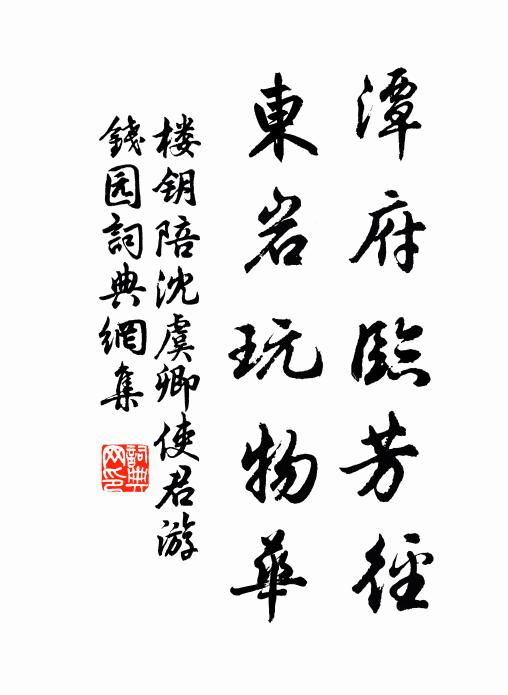 潭府臨芳徑
東岩玩物華
楼钥陪沈虞卿使君游
錢园詞典網集
詞典
网印